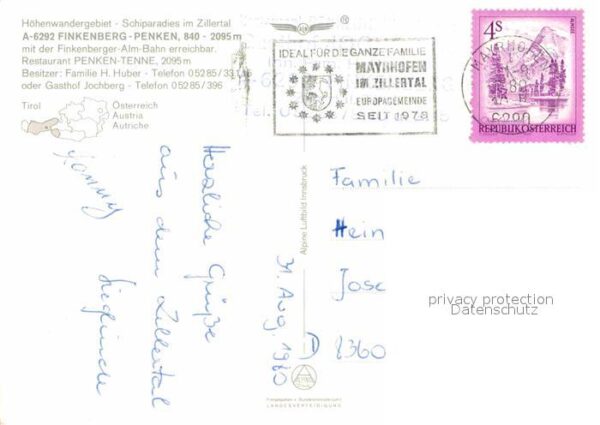 Höhenwandergebiet - Schiparadies im Zillertal
A-6292 FINKENBERG-PENKEN, 840 - 2095 m
mit der Finkenberger-Alm-Bahn erreichbar.
Restaurant PENKEN-TENNE, 2095 m
Besitzer: Familie H. Huber - Telefon 05285/
oder Gasthof Jochberg - Telefon 05285/396
Tirol
Österreich
Austria
Autriche
IDEAL FÜR DIE GANZE FAMILIE
MAYRHOFEN
IM ZILLERTAL
EUROPAGEMEINDE
SEIT 1978
MAYRHOFEN
6290
4S
ALMSEE
REPUBLIK ÖSTERREICH
Herzliche Grüße
aus dem Zillertal
31. Aug. 1980
Alpine Luftbild Innsbruck
Familie
Hein
Jose
D 8360
privacy protection
Datenschutz
LANDESVERTEIDIGUNG